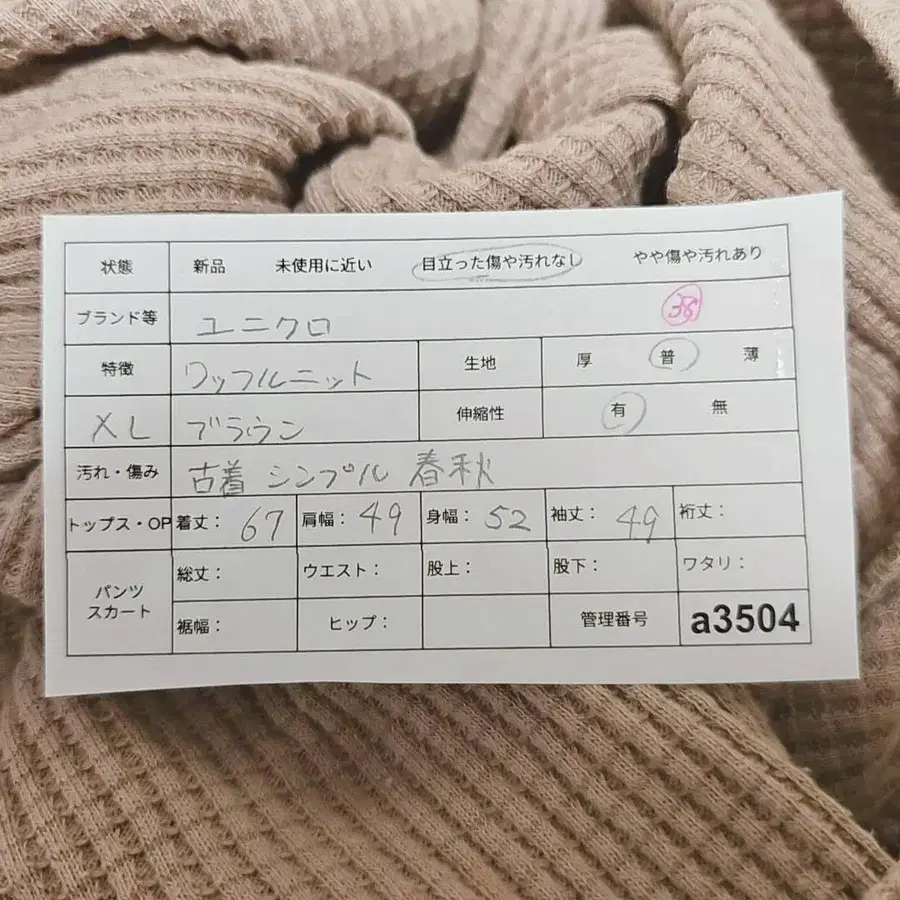 状態 新品 未使用に近い 目立った傷や汚れなし やや傷や汚れあり
ブランド等 ユニクロ
特徴 ワッフルニット 生地 厚 普 薄
XL ブラウン 伸縮性 有 無
汚れ・傷み 古着 シンプル 春秋
トップス・OP 着丈: 67 肩幅: 49 身幅: 52 袖丈: 49 裄丈:
パンツ スカート 総丈: ウエスト: 股上: 股下: ワタリ:
裾幅: ヒップ: 管理番号 a3504